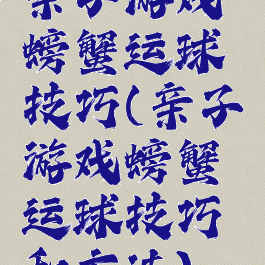 亲子游戏
螃蟹运球
技巧(亲子
游戏螃蟹
运球技巧
和方法)